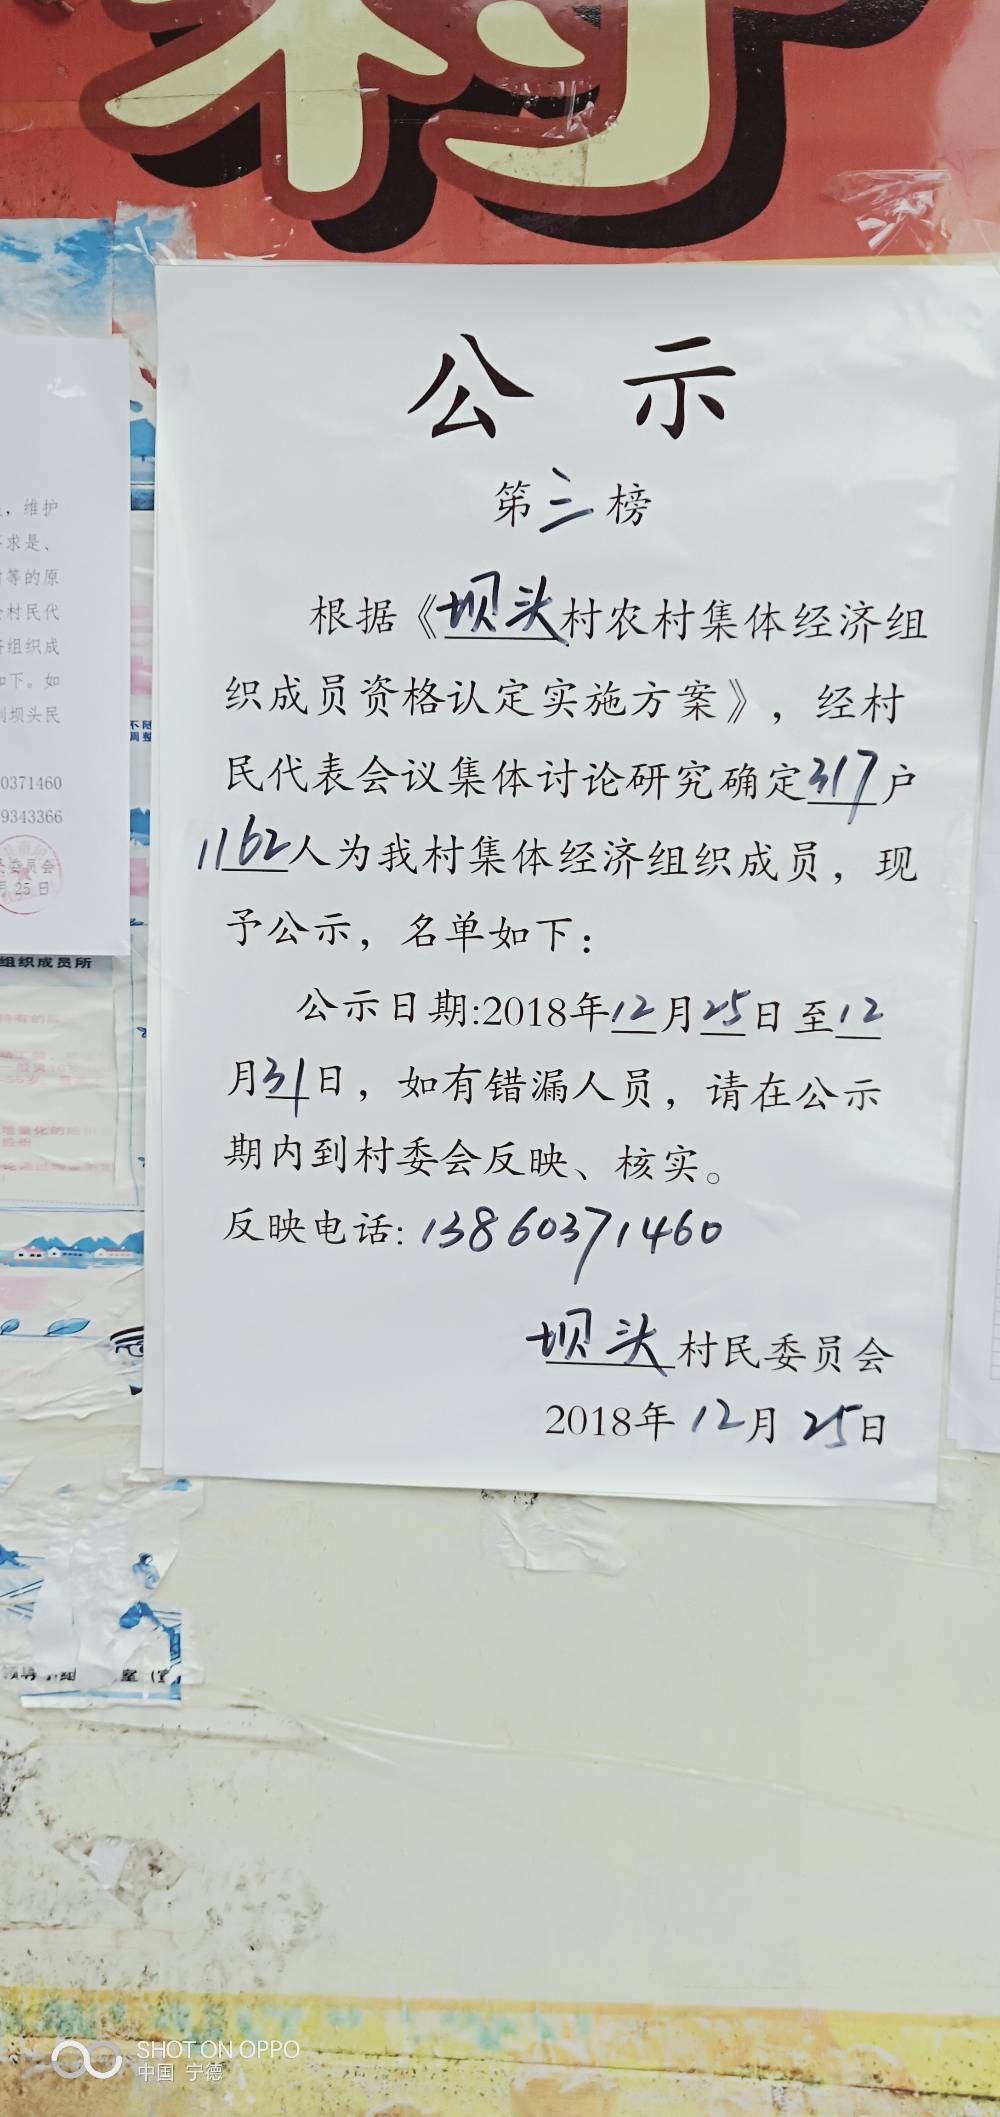 村
公示
第三榜
根据《坝头村农村集体经济组
织成员资格认定实施方案》，经村
民代表会议集体讨论研究确定317户
1162人为我村集体经济组织成员，现
予公示，名单如下：
公示日期:2018年12月25日至12
月31日，如有错漏人员，请在公示
期内到村委会反映、核实。
反映电话: 13860371460
坝头村民委员会
2018年12月25日
，维护
求是、
等的原
村民代
组织成
如下。如
到坝头民
0371460
9343366
委员会
月25日
不随
调整
组织成员所
SHOT ON OPPO
中国 宁德